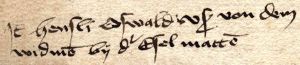 It hensli Oswald vß von dem
widmo bÿ dr Esel matto